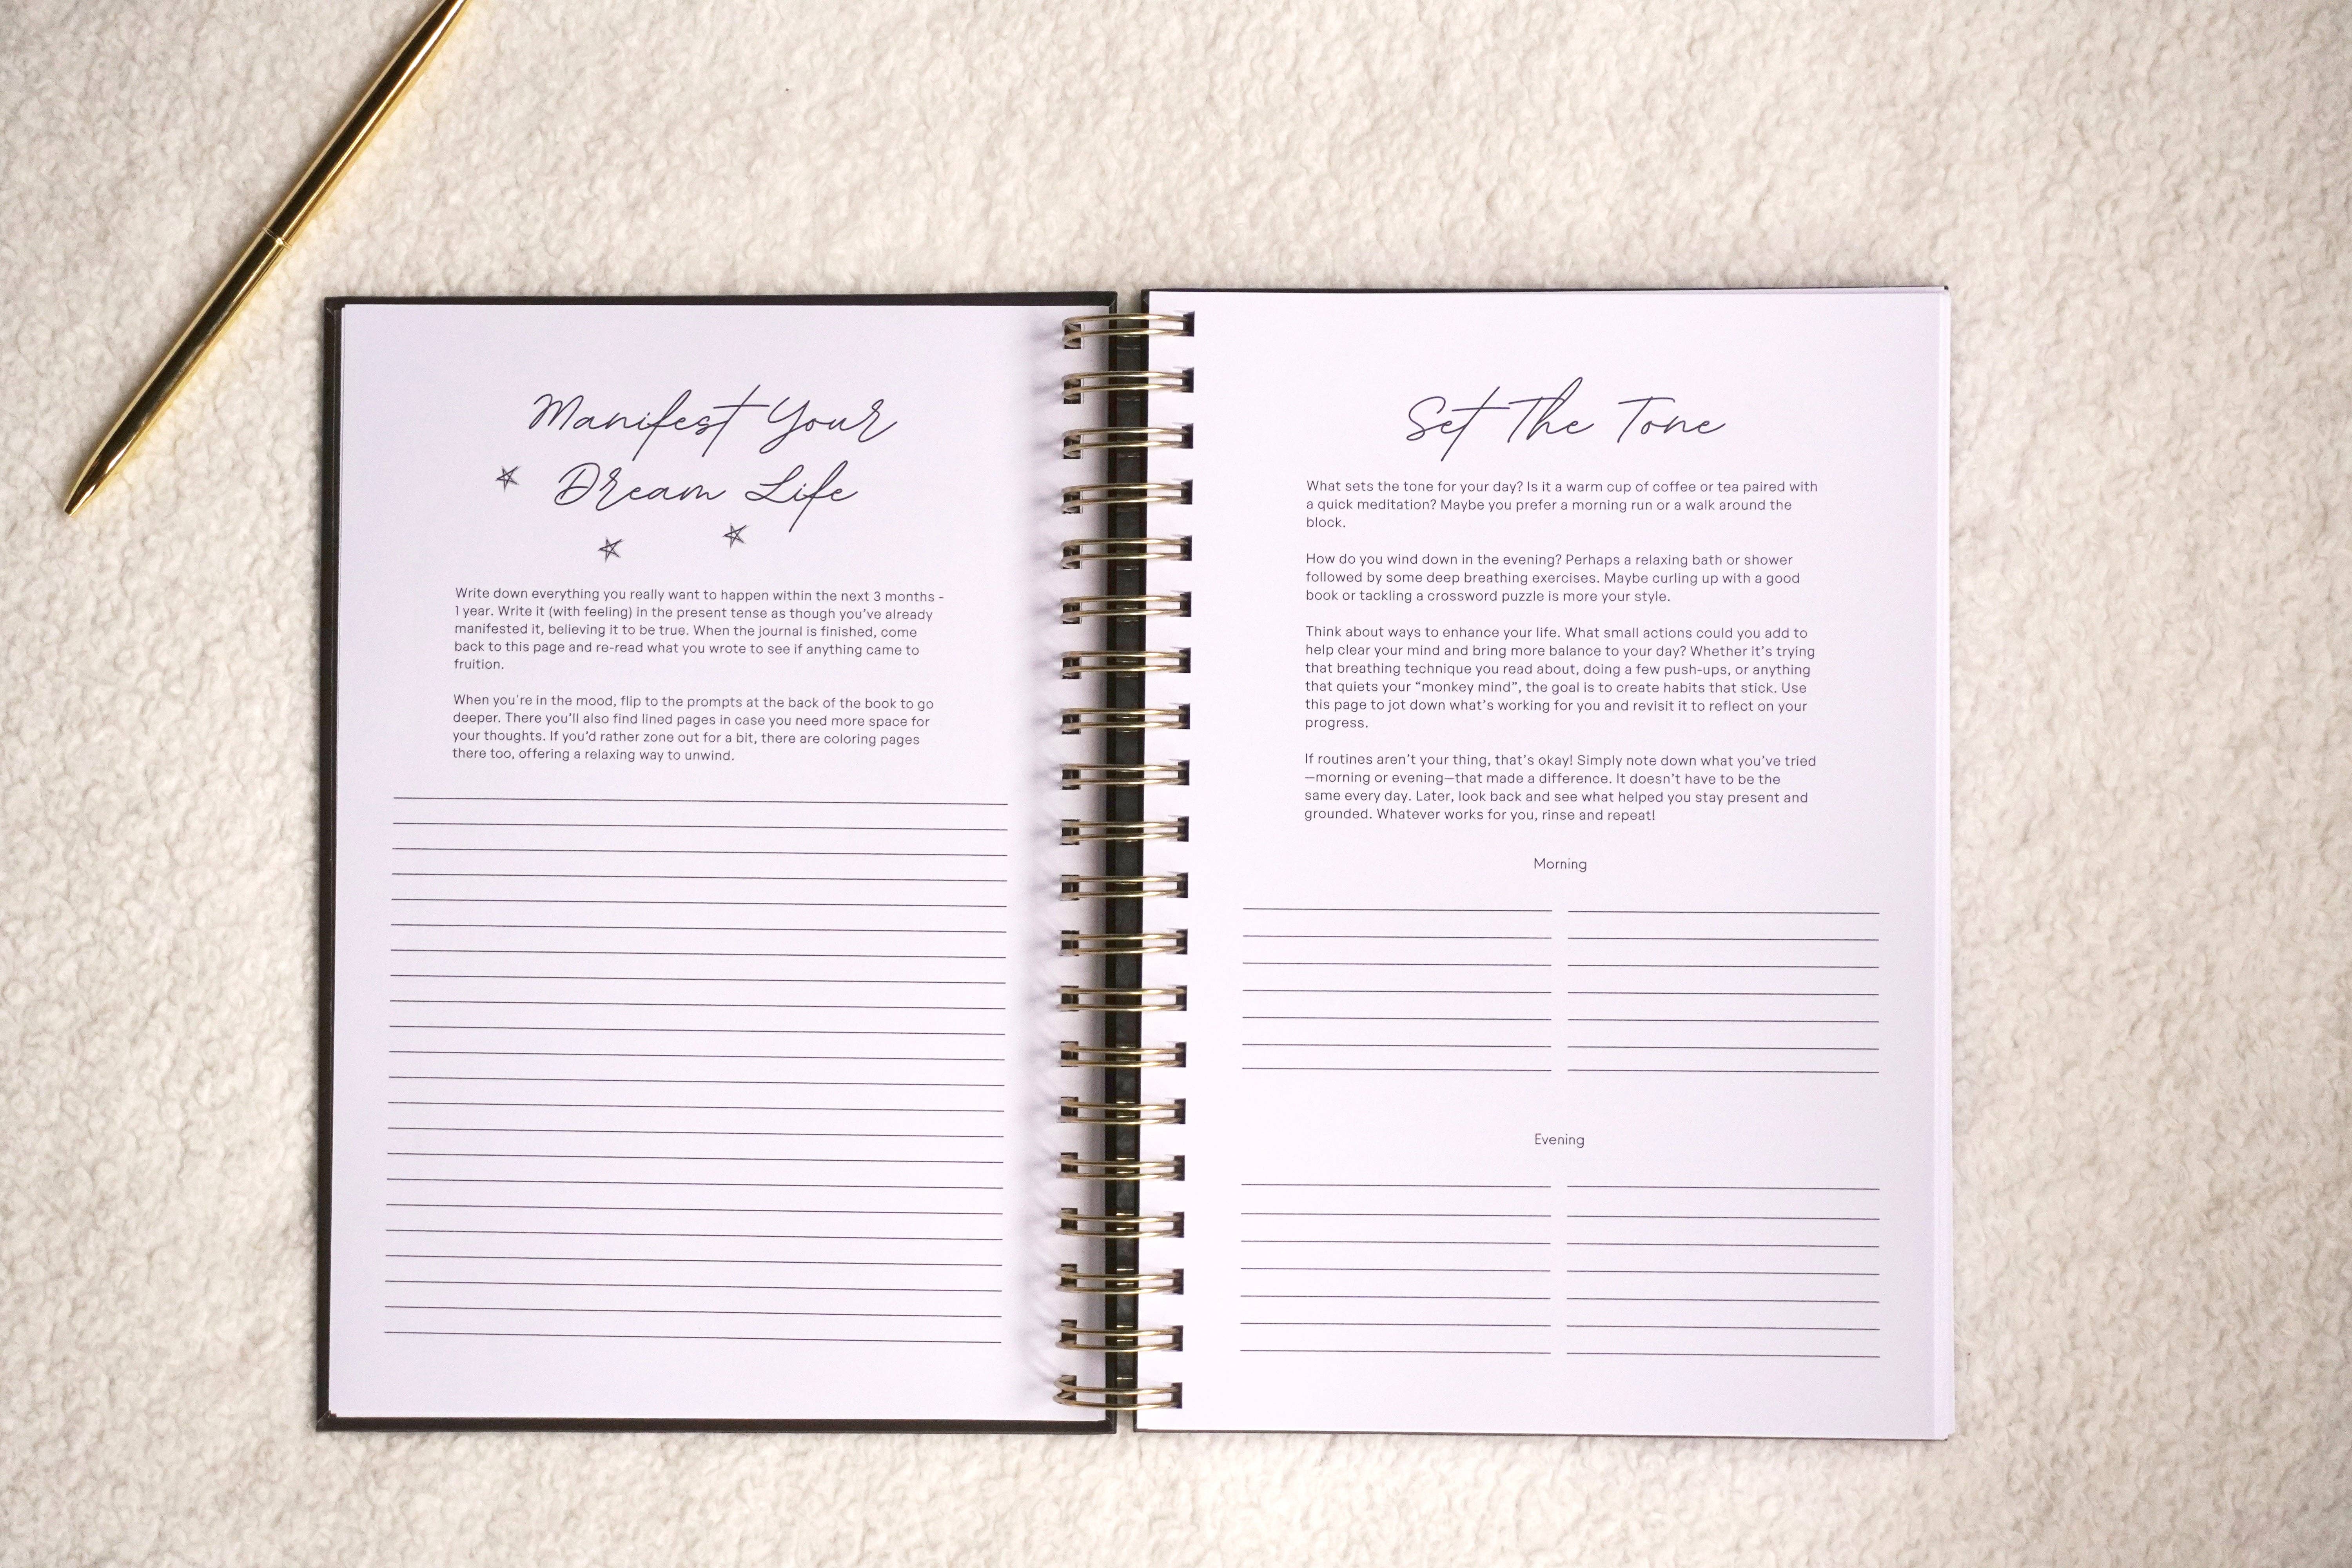 Manifest Your
Dream Life
Write down everything you really want to happen within the next 3 months -
1 year. Write it (with feeling) in the present tense as though you've already
manifested it, believing it to be true. When the journal is finished, come
back to this page and re-read what you wrote to see if anything came to
fruition.
When you're in the mood, flip to the prompts at the back of the book to go
deeper. There you'll also find lined pages in case you need more space for
your thoughts. If you'd rather zone out for a bit, there are coloring pages
there too, offering a relaxing way to unwind.
Set The Tone
What sets the tone for your day? Is it a warm cup of coffee or tea paired with
a quick meditation? Maybe you prefer a morning run or a walk around the
block.
How do you wind down in the evening? Perhaps a relaxing bath or shower
followed by some deep breathing exercises. Maybe curling up with a good
book or tackling a crossword puzzle is more your style.
Think about ways to enhance your life. What small actions could you add to
help clear your mind and bring more balance to your day? Whether it's trying
that breathing technique you read about, doing a few push-ups, or anything
that quiets your “monkey mind”, the goal is to create habits that stick. Use
this page to jot down what's working for you and revisit it to reflect on your
progress.
If routines aren't your thing, that's okay! Simply note down what you've tried
—morning or evening—that made a difference. It doesn't have to be the
same every day. Later, look back and see what helped you stay present and
grounded. Whatever works for you, rinse and repeat!
Morning
Evening